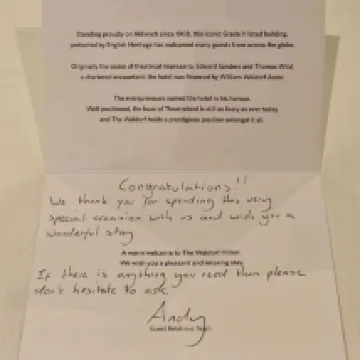 Standing proudly on Aldwych since 1908, this iconic Grade II listed building,
protected by English Heritage has welcomed many guests from across the globe.
Originally the vision of theatrical impresario Edward Sanders and Thomas Wild
a chartered accountant, the hotel was financed by William Waldorf Astor.
The entrepreneurs named the hotel in his honour.
Well positioned, the heart of Theatreland is still as lively as ever today
and The Waldorf holds a prestigious position amongst it all.
Congratulations!!
We thank you for spending this very
special occasion with us and wish you a
wonderful stay.
A warm welcome to The Waldorf Hilton
We wish you a pleasant and relaxing stay.
If there is anything you need then please
don't hesitate to ask
Andy
Guest Relations Team